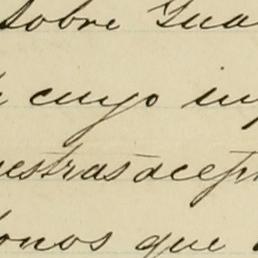 sobre Gua
cuyo im
estras acept
onos que